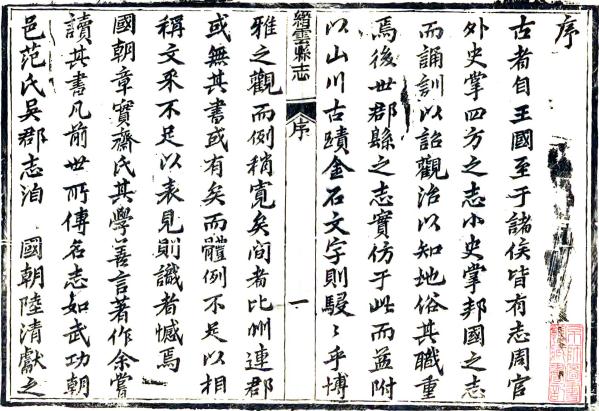 序
古者自王國至于諸侯皆有志周官
外史掌四方之志小史掌邦國之志
而誦訓以詔觀治以知地俗其職重
焉後世郡縣之志實仿于此而益附
以山川古蹟金石文字則駸〻乎博
縉雲縣志
序
一
雅之觀而例稍寛矣間者比州連郡
或無其書或有矣而體例不足以相
稱文采不足以表見則識者憾焉
國朝章實齋氏其學善言著作余嘗
讀其書凡前世所傳名志如武功朝
邑范氏吳郡志洎 國朝陸清獻之